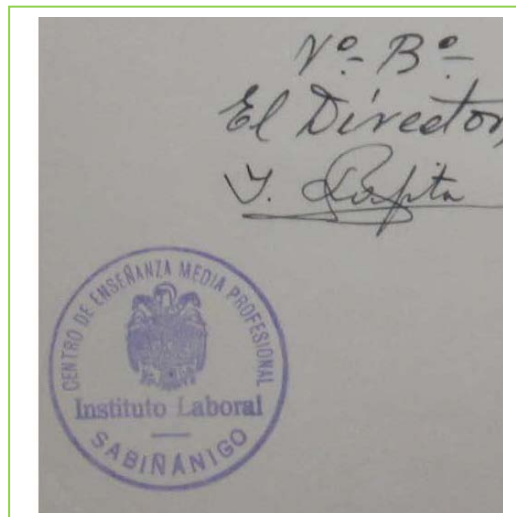 Vº-Bº-
El Director,
CENTRO DE ENSEÑANZA MEDIA PROFESIONAL
Instituto Laboral
SABIÑÁNIGO